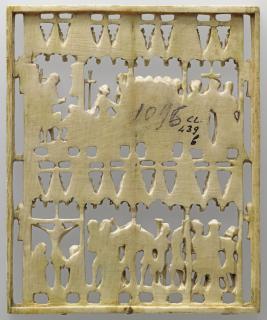 1096
CL.
439
b